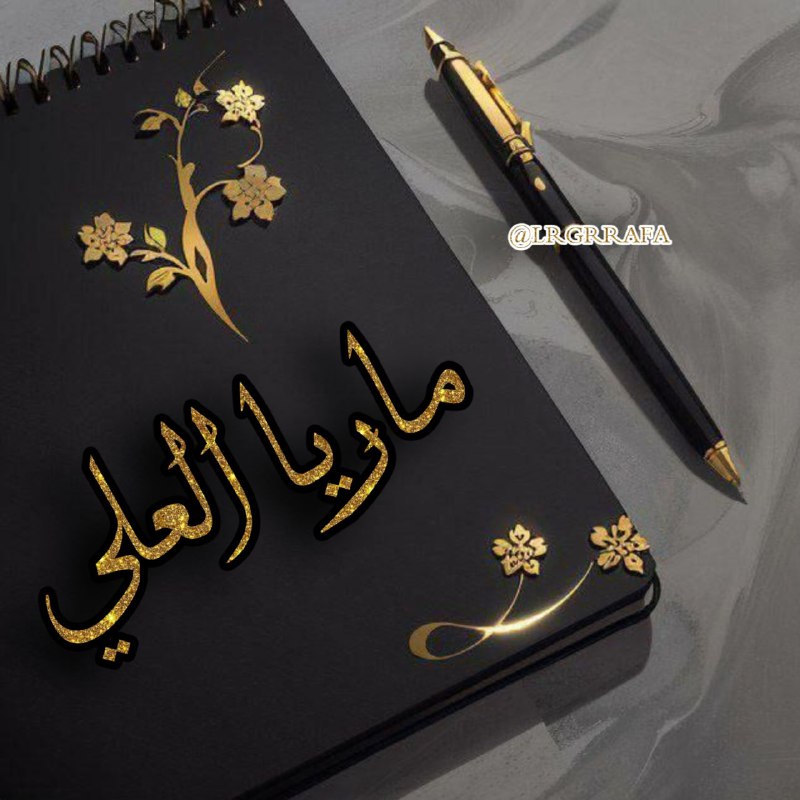 @LRGRRAFA
ماريا العلي